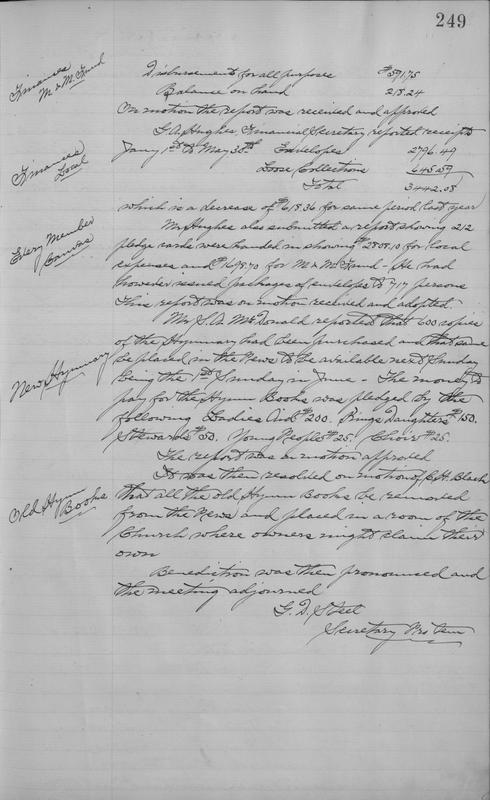 249
Finances
M & M. Fund
Disbursements for all purposes $591.75
Balance on hand 218.24
On motion the report was received and approved
G. A. Hughes, Financial Secretary reported receipts
Finances
Local
Jany 1st to May 30th Envelopes 2796.49
Loose Collections 645.59
Total 3442.08
which is a decrease of $618.36 for same period last year
Every Member
Canvas
Mr Hughes also submitted a report showing 212
pledge cards were handed in showing $2808.10 for local
expenses and for M & M. Fund - He had
however issued packages of envelopes to 717 persons
This report was on motion received and adopted.
New Hymnary
Mr S. A. McDonald reported that 600 copies
of the Hymnary had been purchased and that same
be placed in the Pews to be available next Sunday
being the 1st Sunday in June - The money to
pay for the Hymn Books was pledged by the
following Ladies Aid $200. Kings Daughters $150.
Stewards $50. Young People $25. Choir $25.
The report was on motion approved
Old Hymn
Books
It was then resolved on motion of C. H. Black
that all the old Hymn Books be removed
from the Pews and placed in a room of the
Church where owners might claim their
own
Benediction was then pronounced and
the meeting adjourned
G. D. Steel
Secretary Pro tem